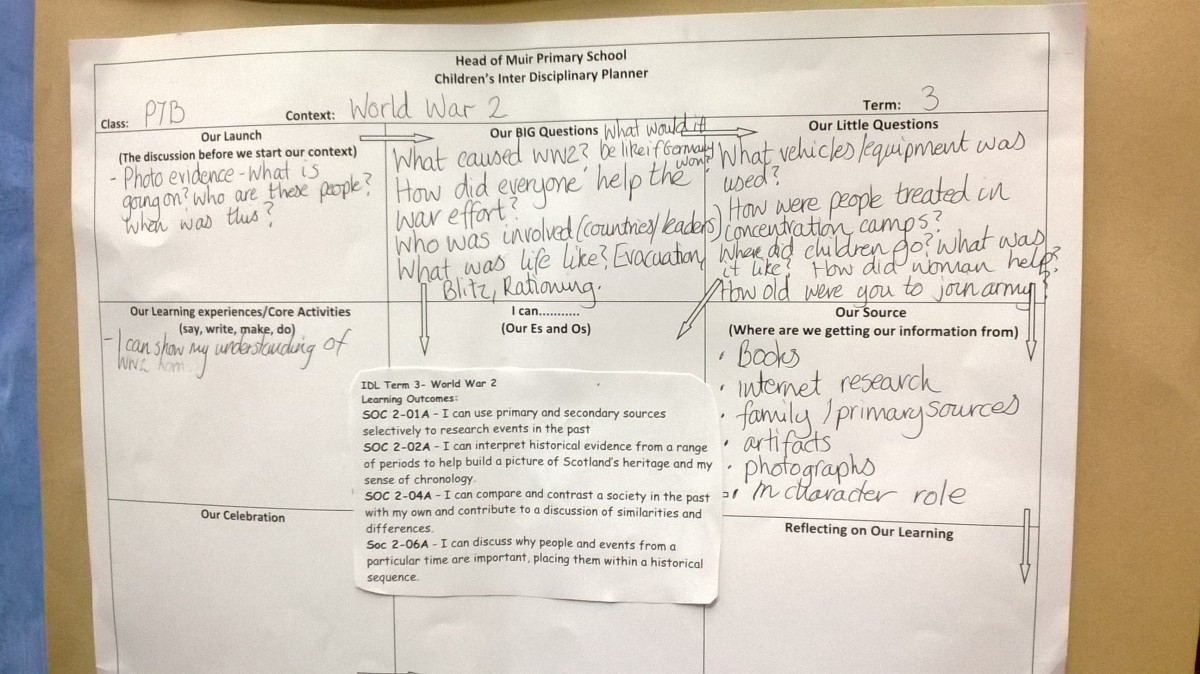 Head of Muir Primary School
Children's Inter Disciplinary Planner
Class: P7B
Context: World War 2
Term: 3
Our Launch
(The discussion before we start our context)
- Photo evidence - what is
going on? who are these people?
when was this?
Our BIG Questions What would it
be like if Germany
won?
What caused WW2?
How did everyone help the
war effort?
Who was involved (countries/leaders)
What was life like? Evacuation,
Blitz, Rationing.
Our Little Questions
What vehicles/equipment was
used?
How were people treated in
concentration camps?
Where did children go? What was
it like? How did woman help?
How old were you to join army?
Our Learning experiences/Core Activities
(say, write, make, do)
- I can show my understanding of
WW2
I can...........
(Our Es and Os)
IDL Term 3- World War 2
Learning Outcomes:
SOC 2-01A - I can use primary and secondary sources
selectively to research events in the past
SOC 2-02A - I can interpret historical evidence from a range
of periods to help build a picture of Scotland's heritage and my
sense of chronology.
SOC 2-04A - I can compare and contrast a society in the past
with my own and contribute to a discussion of similarities and
differences.
Soc 2-06A - I can discuss why people and events from a
particular time are important, placing them within a historical
sequence.
Our Source
(Where are we getting our information from)
• Books
• internet research
• family / primary sources
• artifacts
• photographs
• in character role
Our Celebration
Reflecting on Our Learning